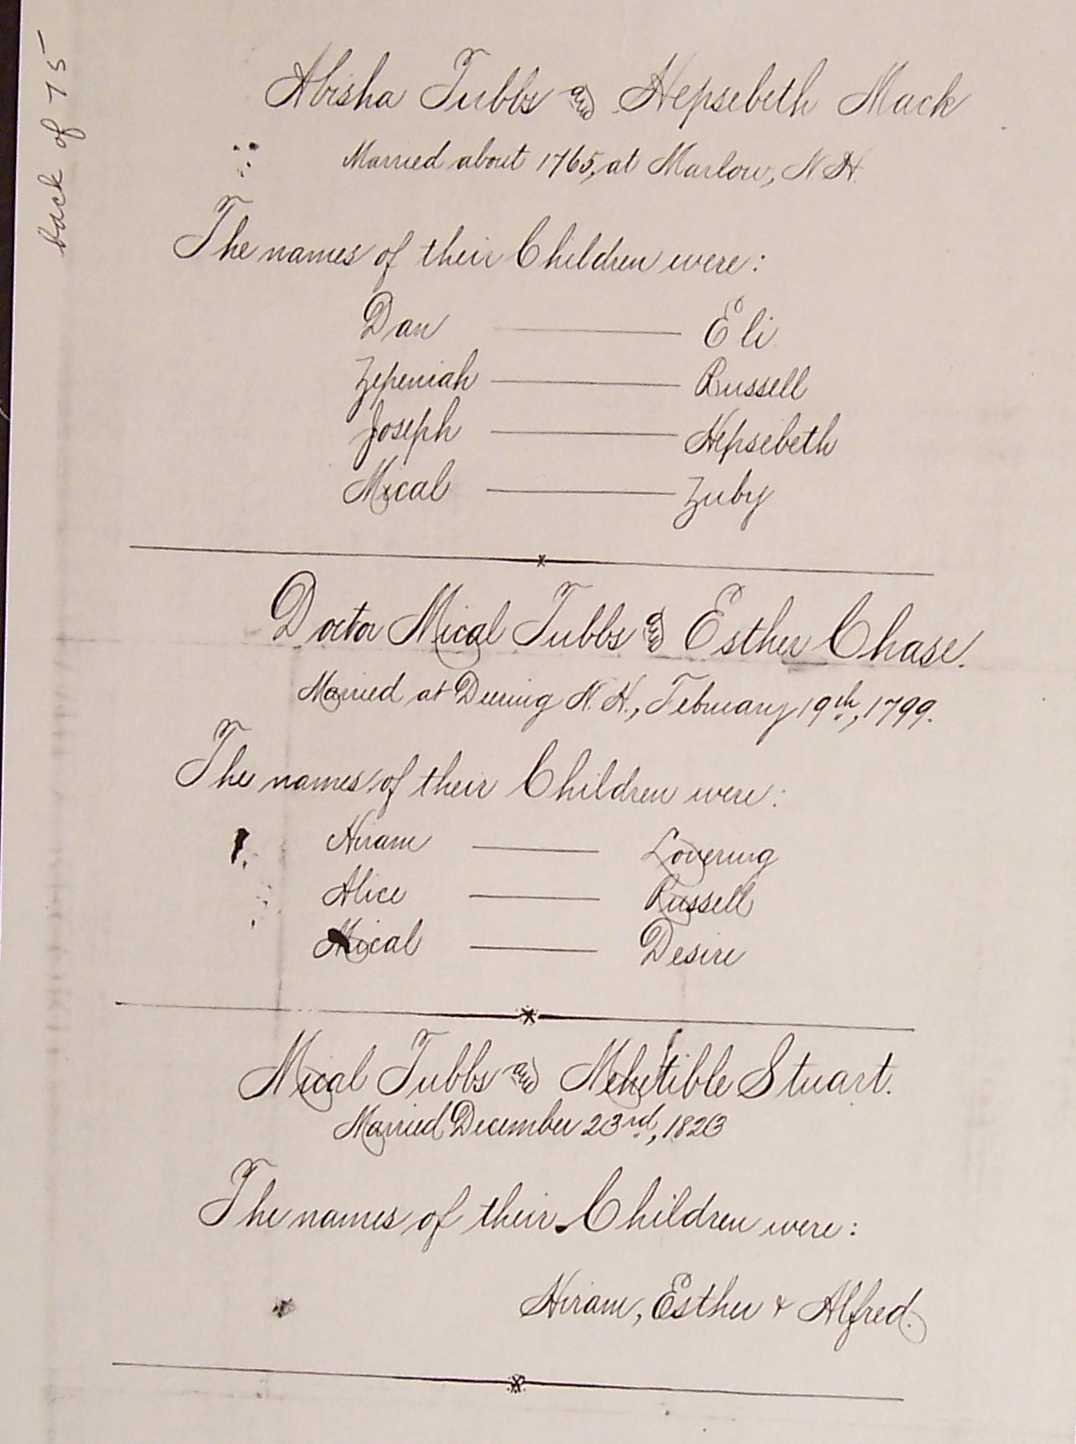 back of 75
Abisha Tubbs and Hepsebeth Mack
Married about 1765, at Marlow, N.H.
The names of their Children were:
Dan — Eli
Zepeniah — Russell
Joseph — Hepsebeth
Mical — Zuby
Doctor Mical Tubbs and Esther Chase.
Married at Deering N.H., February 19th, 1799.
The names of their Children were:
Hiram — Lovering
Alice — Russell
Mical — Desire
Mical Tubbs and Mehitible Stuart.
Married December 23rd, 1823
The names of their Children were:
Hiram, Esther & Alfred.